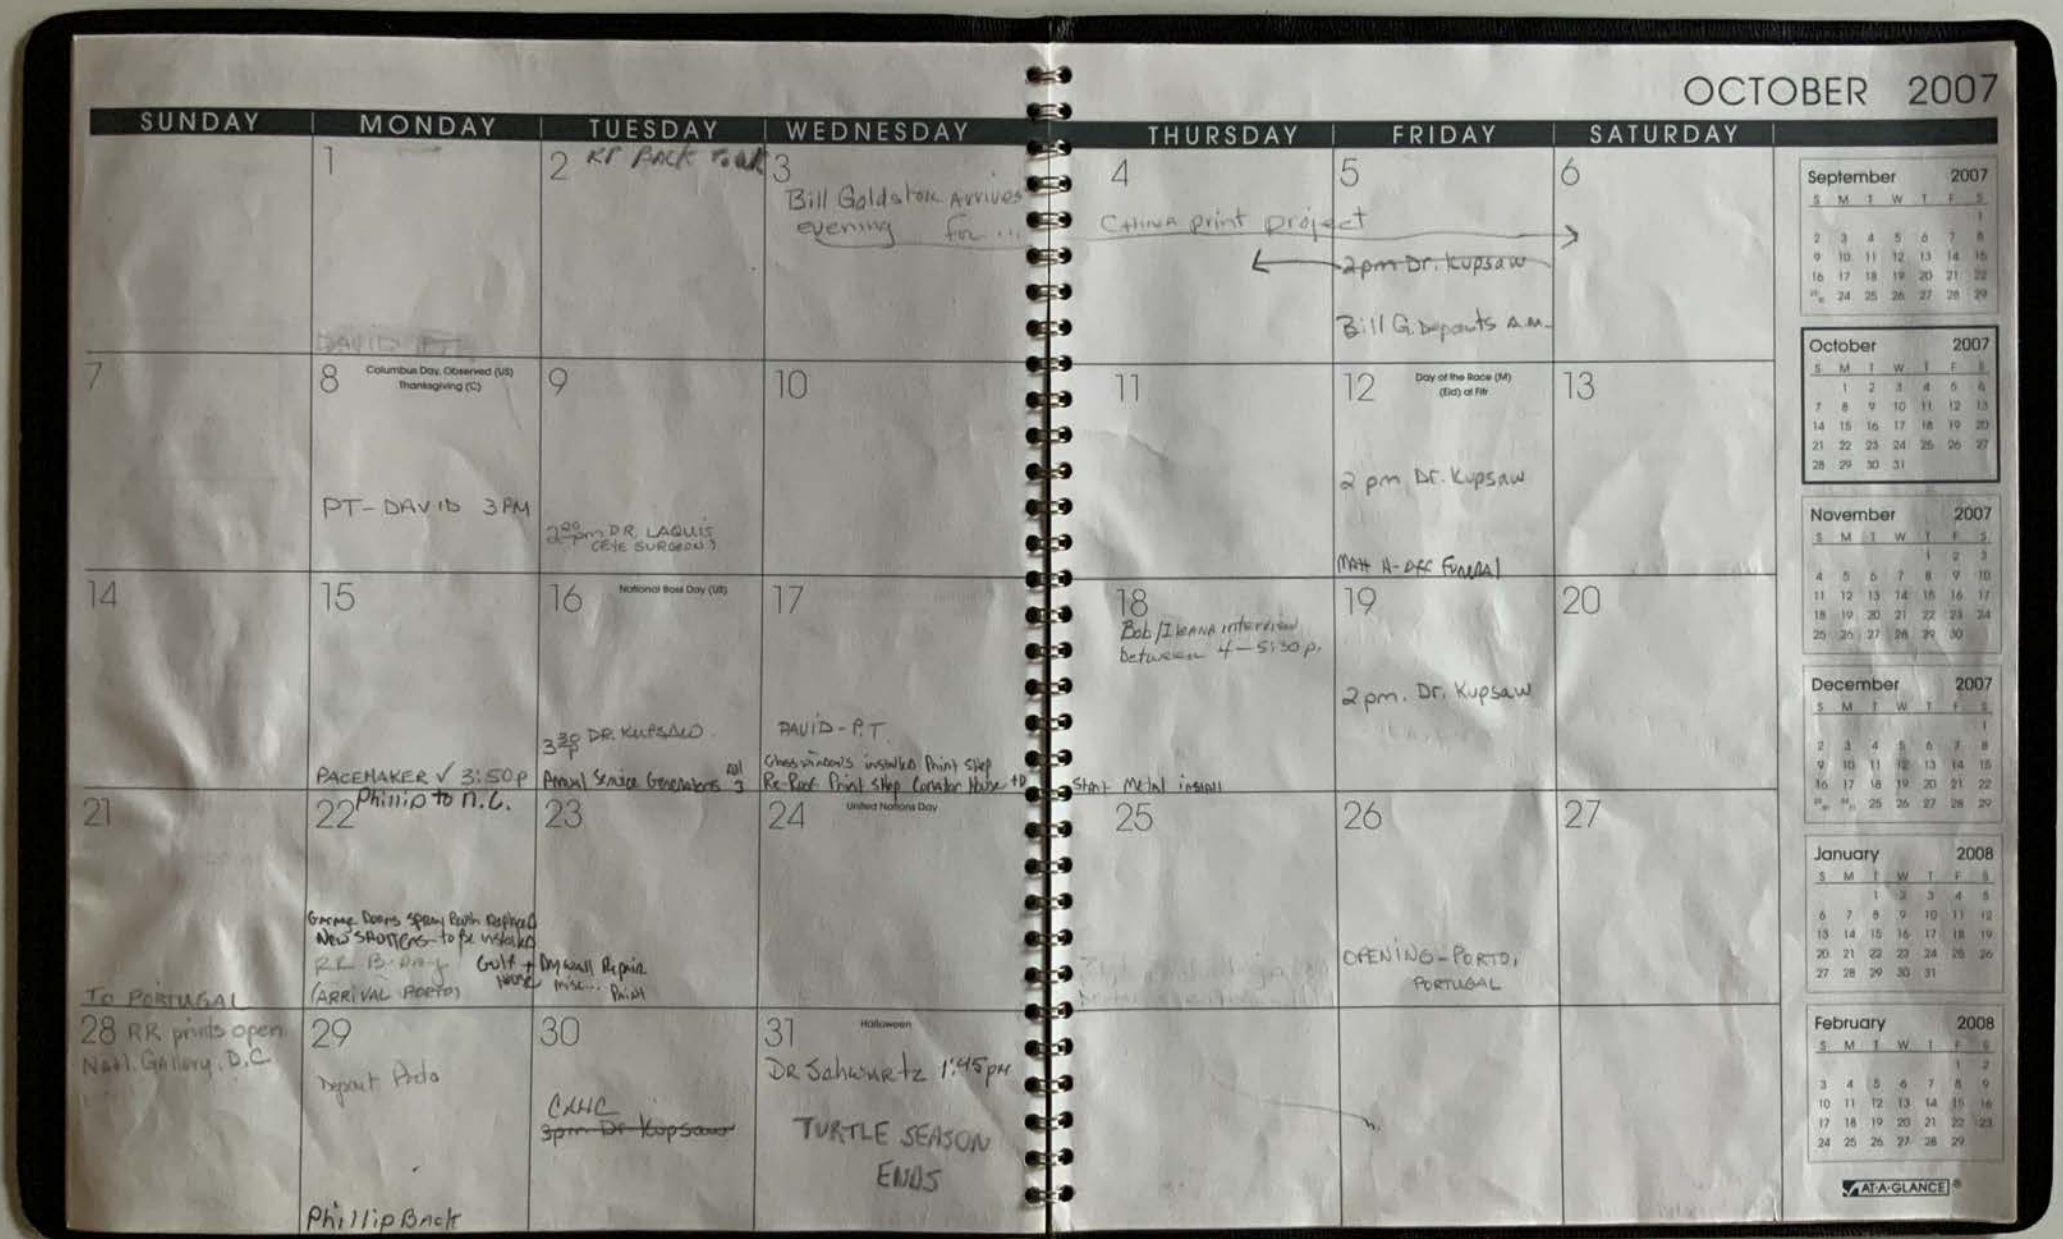 OCTOBER 2007
SUNDAY MONDAY TUESDAY WEDNESDAY THURSDAY FRIDAY SATURDAY
1
DAVID PT
2 KP BACK
3
Bill Goldston Arrives
evening for ...
4
CHINA print project
5
2pm Dr. Kupsaw
Bill G. Departs A.M.
6
7
8 Columbus Day, Observed (US)
Thanksgiving (C)
PT- DAVID 3 PM
9
2:00 pm DR. LAQUIS
(EYE SURGEON)
10
11
12 Day of the Race (M)
(Eid) al Fitr
2 pm Dr. Kupsaw
MATT H-OFF FUNERAL
13
14
15
PACEMAKER ✓ 3:50p
16 National Boss Day (US)
3:30 p DR. KUPSAW
Annual Service Generators All 3
17
DAVID - P.T.
Glass windows installed Print Shop
Re-Roof Print Shop House to
18
Bob/ILEANA interview
between 4-5:30 p.
Start Metal install
19
2pm. Dr. Kupsaw
20
21
TO PORTUGAL
22 Phillip to N.C.
Garage Doors Spray Replaced
New SHUTTERS to be installed
RR B-Day
(ARRIVAL PORTO)
23
Gulf + Drywall Repair
House misc... Paint
24 United Nations Day
25
26
OPENING-PORTO,
PORTUGAL
27
28 RR prints open
Natl. Gallery, D.C.
29
Depart Porto
Phillip Back
30
3pm Dr Kupsaw
31 Halloween
DR Schwartz 1:45pm
TURTLE SEASON
ENDS
September 2007
S M T W T F S
1
2 3 4 5 6 7 8
9 10 11 12 13 14 15
16 17 18 19 20 21 22
23 30 24 25 26 27 28 29
October 2007
S M T W T F S
1 2 3 4 5 6
7 8 9 10 11 12 13
14 15 16 17 18 19 20
21 22 23 24 25 26 27
28 29 30 31
November 2007
S M T W T F S
1 2 3
4 5 6 7 8 9 10
11 12 13 14 15 16 17
18 19 20 21 22 23 24
25 26 27 28 29 30
December 2007
S M T W T F S
1
2 3 4 5 6 7 8
9 10 11 12 13 14 15
16 17 18 19 20 21 22
23 30 24 31 25 26 27 28 29
January 2008
S M T W T F S
1 2 3 4 5
6 7 8 9 10 11 12
13 14 15 16 17 18 19
20 21 22 23 24 25 26
27 28 29 30 31
February 2008
S M T W T F S
1 2
3 4 5 6 7 8 9
10 11 12 13 14 15 16
17 18 19 20 21 22 23
24 25 26 27 28 29
AT-A-GLANCE®